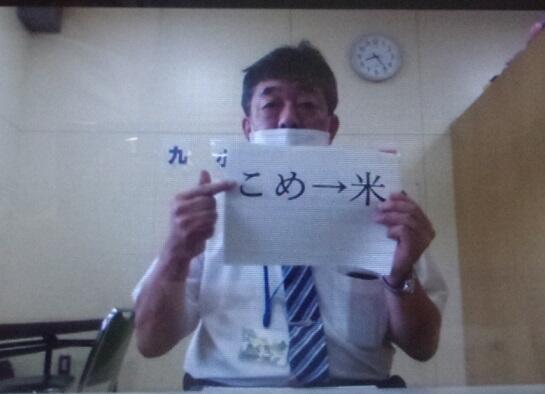 九
こめ→米